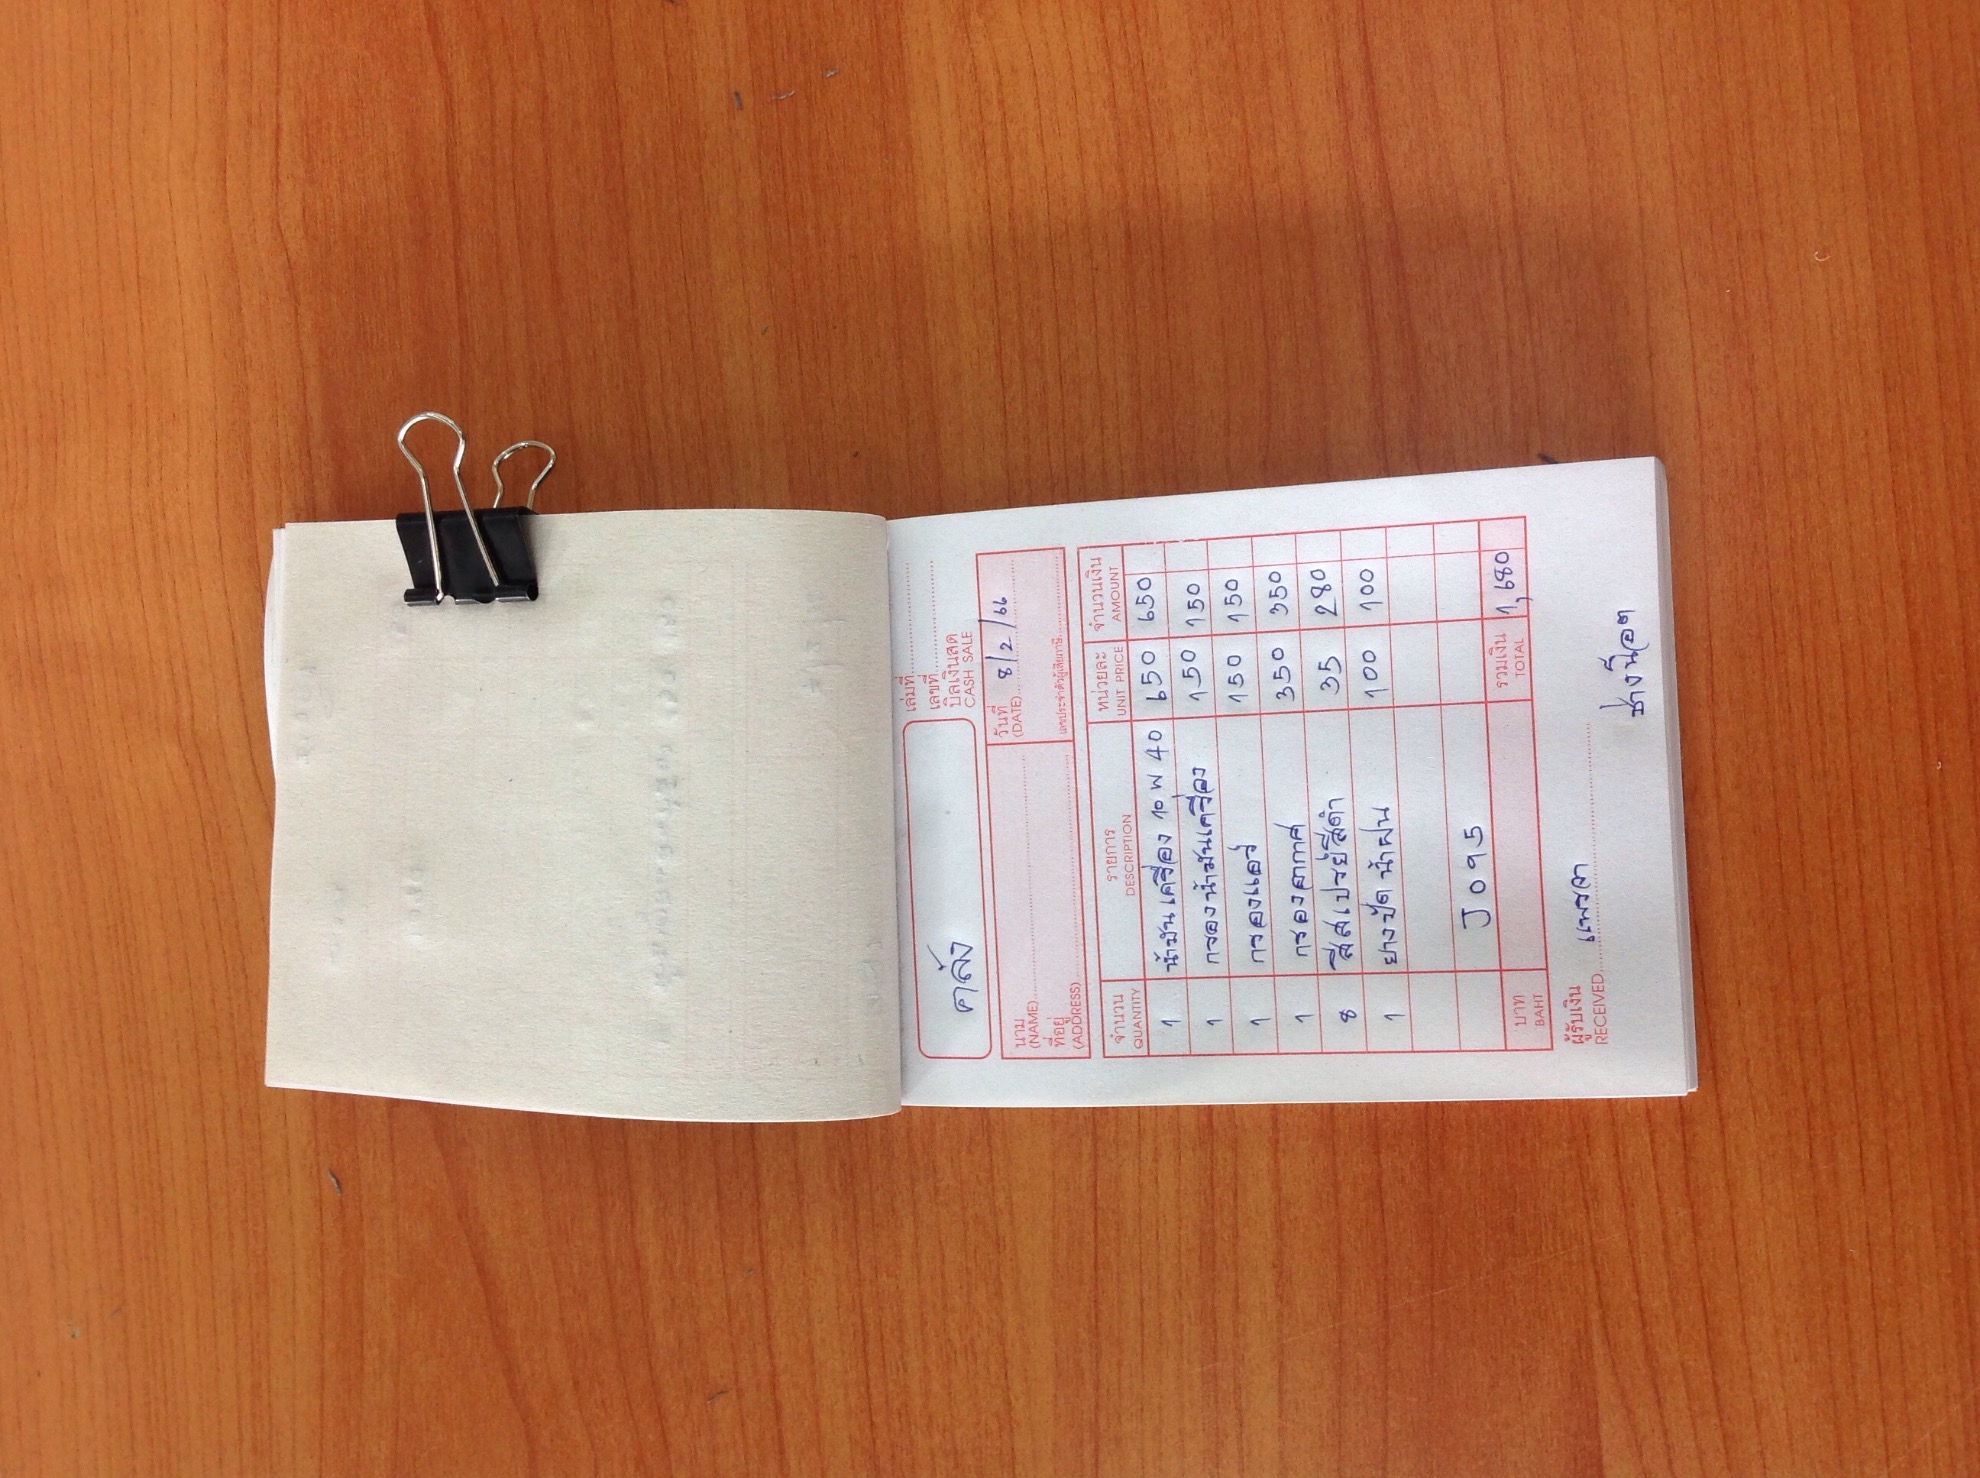 เล่มที่
เลขที่
บิลเงินสด
CASH SALE
คลัง
นาม
(NAME)
วันที่ 8/2/66
(DATE)
ที่อยู่
(ADDRESS)
เลขประจำตัวผู้เสียภาษี
จำนวน รายการ หน่วยละ จำนวนเงิน
QUANTITY DESCRIPTION UNIT PRICE AMOUNT
1 น้ำมันเครื่อง 10 W 40 650 650
1 กรองน้ำมันเครื่อง 150 150
1 กรองแอร์ 150 150
1 กรองอากาศ 350 350
8 สีสเปรย์สีดำ 35 280
1 ยางปัดน้ำฝน 100 100
J095
บาท รวมเงิน 1,680
BAHT TOTAL
ผู้รับเงิน แพรวา
RECEIVED
ช่างน๊อต